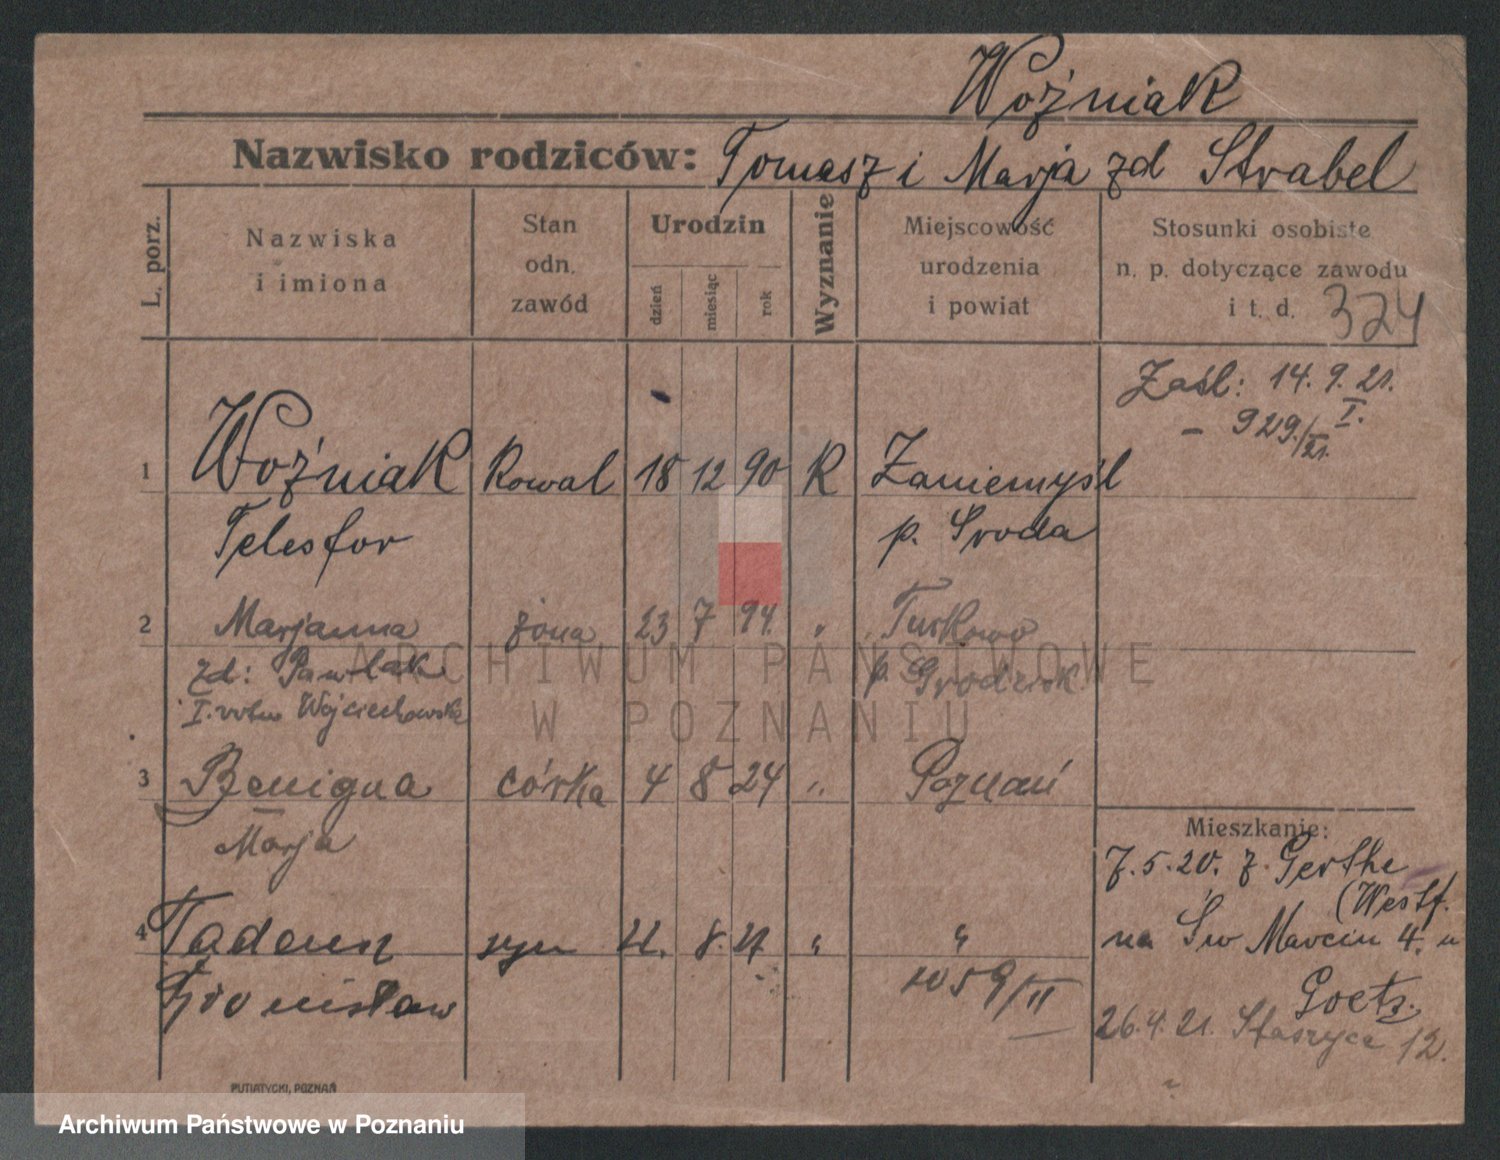 Woźniak
Nazwisko rodziców: Tomasz i Marja zd Strabel
L. porz.
Nazwiska
i imiona
Stan
odn.
zawód
Urodzin
dzień
miesiąc
rok
Wyznanie
Miejscowość
urodzenia
i powiat
Stosunki osobiste
n. p. dotyczące zawodu
i t. d. 324
Zaśl: 14. 9. 21.
– 929./21. I.
1 Woźniak Kowal 18 12 90 R Zaniemyśl
Telesfor p. Środa
2 Marjanna żona 23 7 94. " Turkowo
zd: Pawlak p. Grodzisk
I. voto Wojciechowska
3 Benigna córka 4 8 24 " Poznań
Marja
Mieszkanie:
7.5.20. z. Gerthe
(Westf.
4 Tadeusz syn 21. 8. 27 " "
na Św Marcin 4. u
Goetz.
Bronisław 1059/II
26.4.21. Staszyca 12.
PUTIATYCKI, POZNAŃ
ARCHIWUM PAŃSTWOWE
W POZNANIU
Archiwum Państwowe w Poznaniu